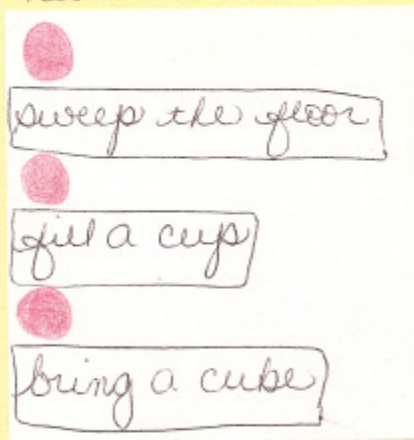 sweep the floor
fill a cup
bring a cube